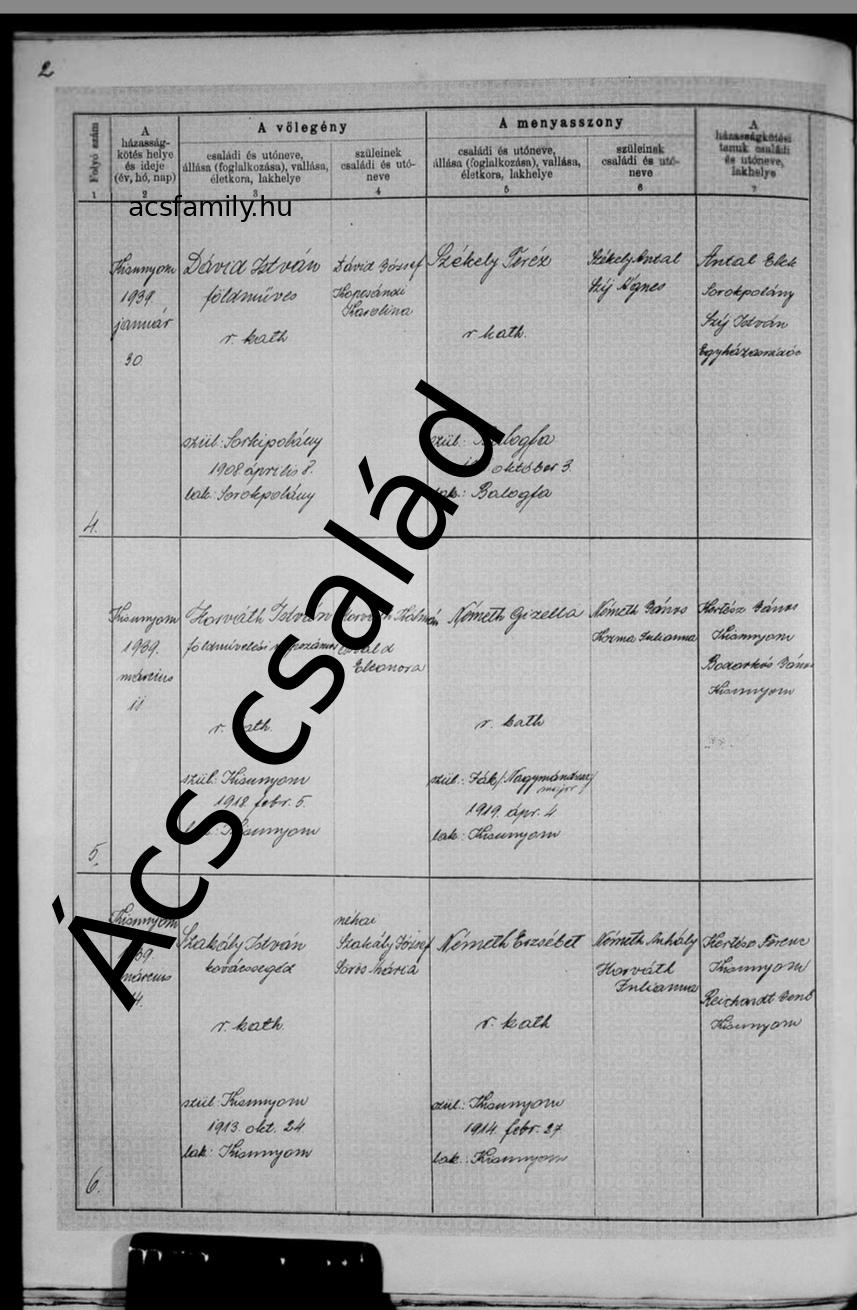 2
1 Folyó szám
A házasság-
kötés helye
és ideje
(év, hó, nap)
2
A vőlegény
családi és utóneve,
állása (foglalkozása), vallása,
életkora, lakhelye
3
szüleinek
családi és utó-
neve
4
A menyasszony
családi és utóneve,
állása (foglalkozása), vallása,
életkora, lakhelye
5
szüleinek
családi és utó-
neve
6
A
házasságkötési
tanuk családi
és utóneve,
lakhelye
7
acsfamily.hu
Ács család
4.
Kisunyom
1939.
január
30.
Dávid István
földműves
r. kath
szül: Sorkipolány
1908 április 8.
lak: Sorokpolány
Dávid József
Karolina
Székely Teréz
r. kath.
szül:
október 3.
lak: Balogfa
Székely Antal
Szij Ágnes
Antal Elek
Sorokpolány
Szij István
5.
Kisunyom
1939.
március
11
Horváth István
földművelési
r. kath.
szül: Kisunyom
1918. febr. 5.
Kisunyom
Horváth Kálmán
Eleonora
Németh Gizella
r. kath
szül.: Ják
major
1919. ápr. 4
lak: Kisunyom
Németh János
Kozma Julianna
Kertész János
Kisunyom
János
Kisunyom
6.
Kisunyom
1939.
március
14.
Szakály István
kovácssegéd
r. kath.
szül: Kisunyom
1913. okt. 24
lak: Kisunyom
néhai
Szakály József
Sörös Mária
Németh Erzsébet
r. kath
szül.: Kisunyom
1914. febr. 27
lak.: Kisunyom
Németh Mihály
Horváth
Julianna
Kertész Ferenc
Kisunyom
Reichardt Jenő
Kisunyom